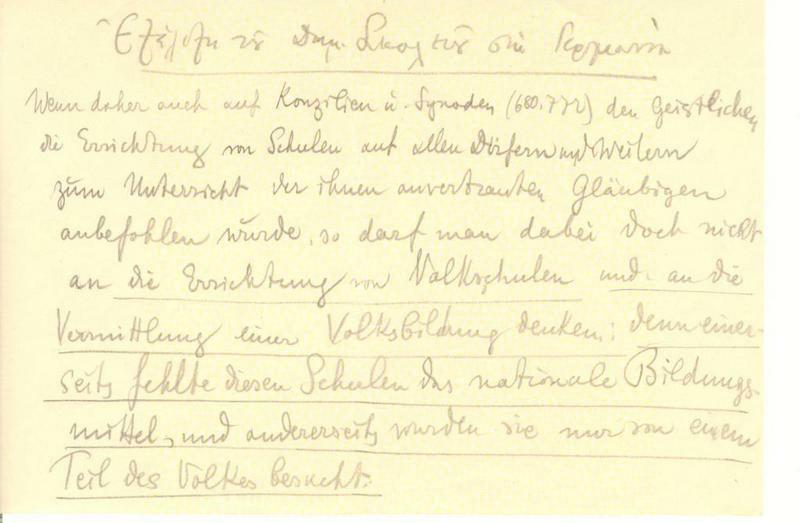 Ἐξέλιξη τοῦ Δημ. Σχολείου στη Γερμανία
Wenn daher auch auf Konzilien u. Synoden (680, 772) den Geistlichen
die Errichtung von Schulen auf allen Dörfern und Weilern
zum Unterricht der ihnen anvertrauten Gläubigen
anbefohlen wurde, so darf man dabei doch nicht
an die Errichtung von Volksschulen und an die
Vermittlung einer Volksbildung denken; denn einer-
seits fehlte diesen Schulen das nationale Bildungs-
mittel, und andererseits wurden sie nur von einem
Teil des Volkes besucht.